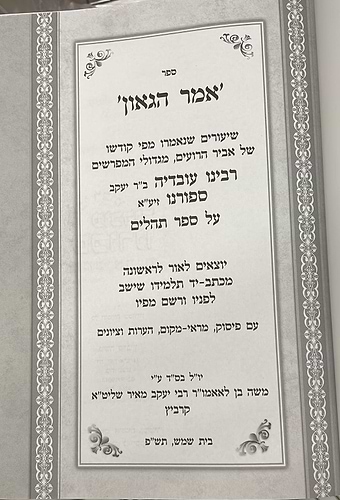 ספר
'אמר הגאון'
שיעורים שנאמרו מפי קודשו
של אביר הרועים, מגדולי המפרשים
רבינו עובדיה ב"ר יעקב
ספורנו זיע"א
על ספר תהלים
יוצאים לאור לראשונה
מכתב-יד תלמידו שישב
לפניו ורשם מפיו
עם פיסוק, מראי-מקום, הערות וציונים
יו"ל בס"ד ע"י
משה בן לאאמו"ר רבי יעקב מאיר שליט"א
קרביץ
בית שמש, תש"פ